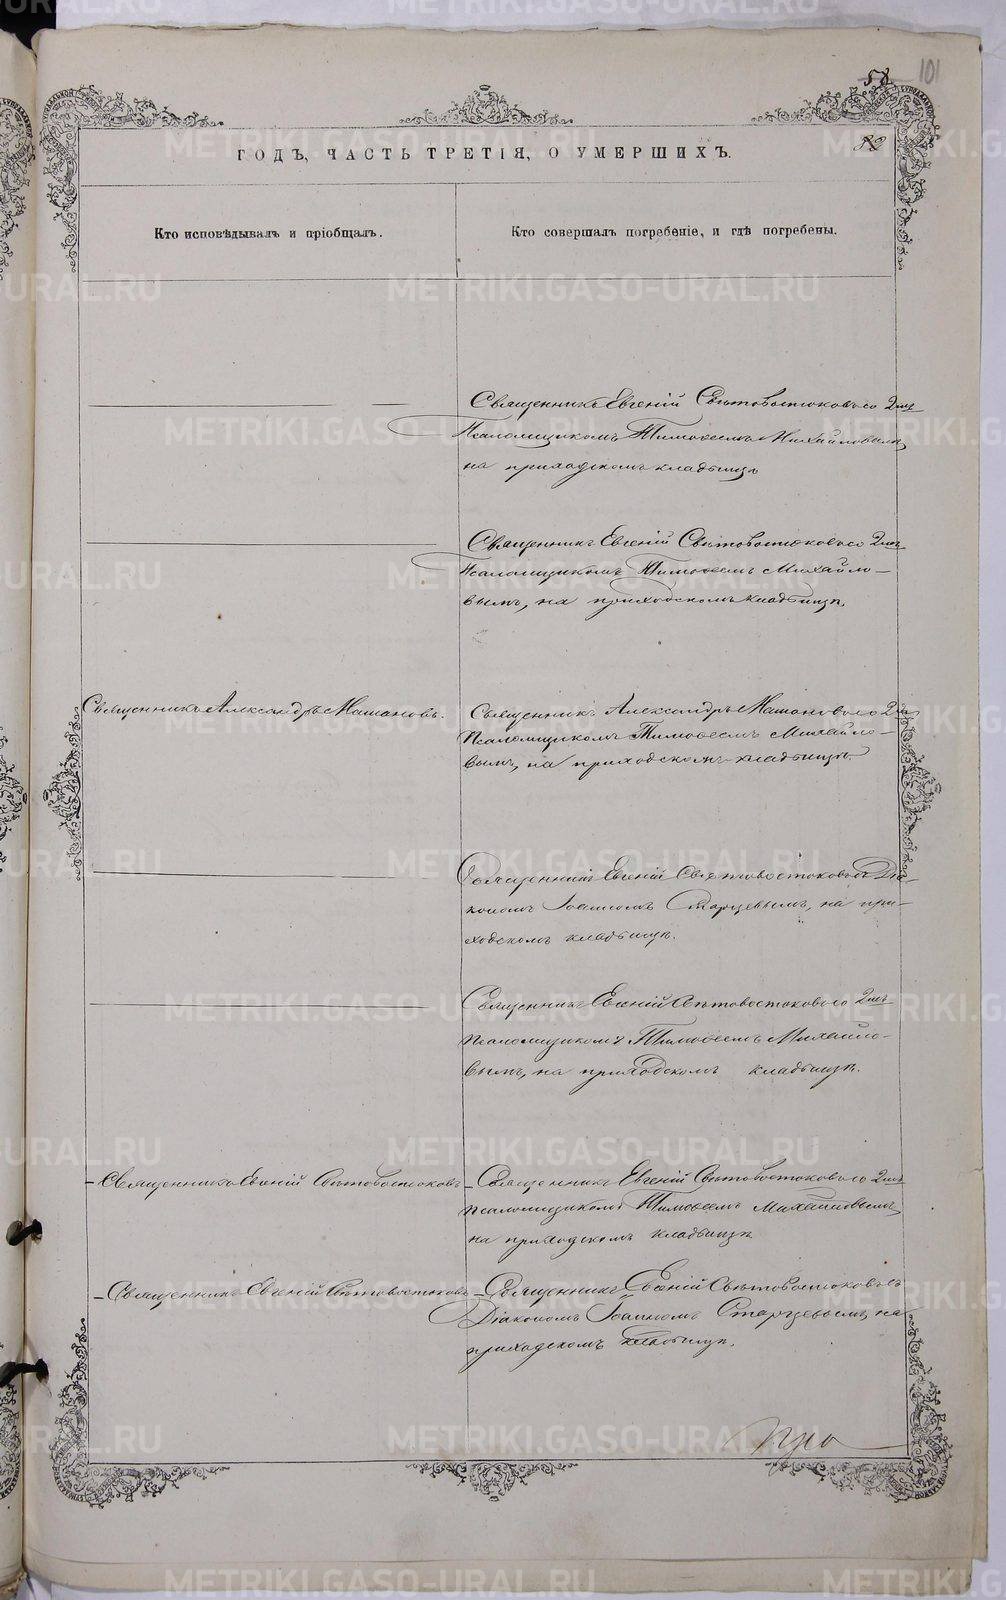 58 101
ГОДЪ, ЧАСТЬ ТРЕТІЯ, О УМЕРШИХЪ.
Кто исповѣдывалъ и пріобщалъ.
Кто совершалъ погребеніе, и гдѣ погребены.
Священникъ Евгеній Свѣтовостоковъ со 2мъ
Псаломщикомъ Тимоѳеемъ Михайловымъ
на приходскомъ кладбищѣ
Священникъ Евгеній Свѣтовостоковъ со 2мъ
Псаломщикомъ Тимоѳеемъ Михайло-
вымъ, на приходскомъ кладбищѣ.
Священникъ Александръ Машановъ.
Священникъ Александръ Машановъ со 2мъ
Псаломщикомъ Тимоѳеемъ Михайло-
вымъ, на приходскомъ кладбищѣ.
Священникъ Евгеній Свѣтовостоковъ съ Діа-
кономъ Іоанномъ Старцевымъ, на при-
ходскомъ кладбищѣ.
Священникъ Евгеній Свѣтовостоковъ со 2мъ
псаломщикомъ Тимоѳеемъ Михайло-
вымъ, на приходскомъ кладбищѣ.
Священникъ Евгеній Свѣтовостоковъ
Священникъ Евгеній Свѣтовостоковъ со 2мъ
псаломщикомъ Тимоѳеемъ Михайловымъ
на приходскомъ кладбищѣ
Священникъ Евгеній Свѣтовостоковъ
Священникъ Евгеній Свѣтовостоковъ съ
Діакономъ Іоанномъ Старцевымъ, на
приходскомъ кладбищѣ.
METRIKI.GASO-URAL.RU